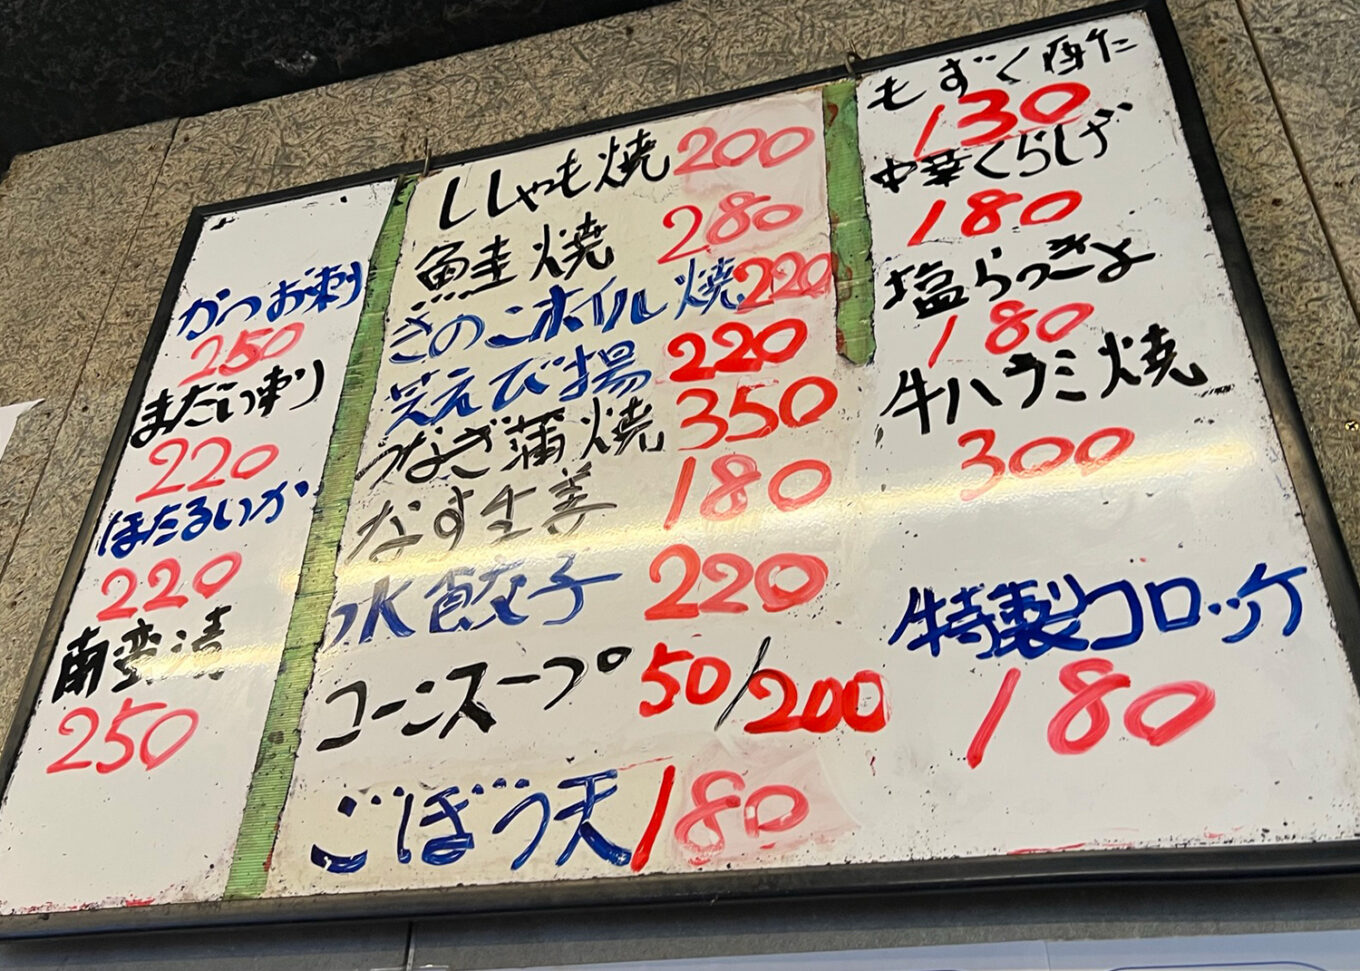 かつお刺
250
まだい刺
220
ほたるいか
220
南蛮漬
250
ししゃも焼 200
鮭焼 280
きのこホイル焼 220
えび揚 220
うなぎ蒲焼 350
なす生姜 180
水餃子 220
コーンスープ 50/200
ごぼう天 180
もずく酢
130
中華くらげ
180
塩らっきょ
180
牛ハラミ焼
300
特製コロッケ
180